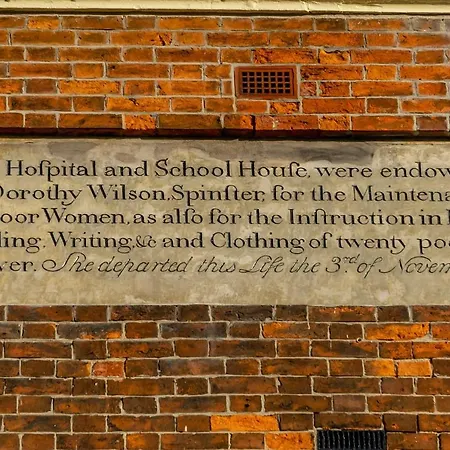 Hoſpital and School Houſe, were endow
Dorothy Wilson, Spinſter, for the Maintena
oor Women, as alſo for the Inſtruction in
ding, Writing, &c and Clothing of twenty po
ver. She departed this Life the 3.rd of Novem